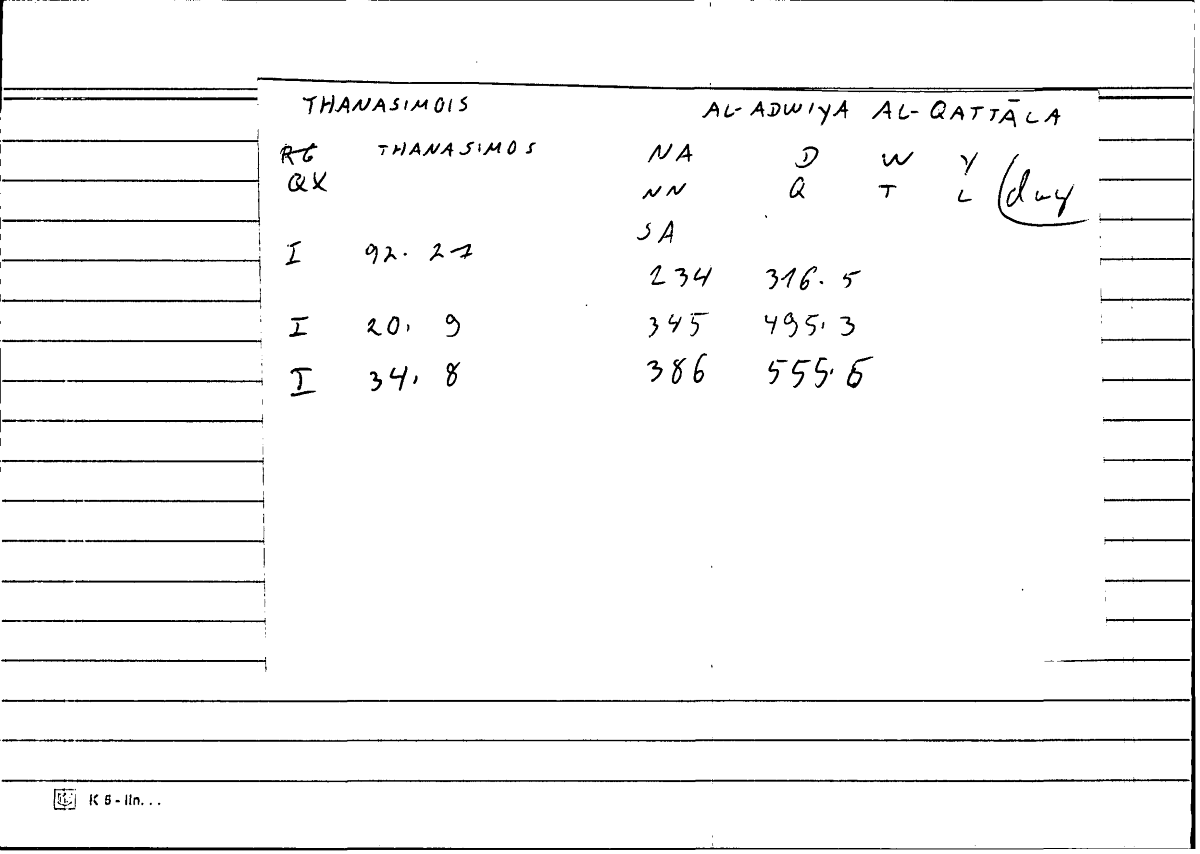 THANASIMOIS AL-ADWIYA AL-QATTĀLA
RG THANASIMOS NA D W Y
QX NN Q T L dwy
SA
I 92. 21
234 316. 5
I 20, 9 345 495, 3
I 34, 8 386 555. 6
K 5 - lln. . .